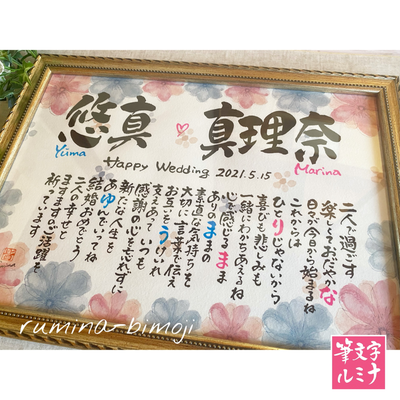 悠真
真理奈
Yūma
Marina
Happy Wedding 2021.5.15
二人で過ごす
楽しくておだやかな
日々が今日から始まるね
これからは
ひとりじゃないから
喜びも悲しみも
一緒にわかちあえるね
心で感じるまま
ありのままの
素直な気持ちを
大切に言葉で伝え
お互いをうけいれ
支えあっていつも
感謝の心を忘れずに
新たな人生を
あゆんでいってね
結婚おめでとう
二人の幸せと
ますますのご活躍を
祈っています
rumina-bimoji
筆文字
ルミナ